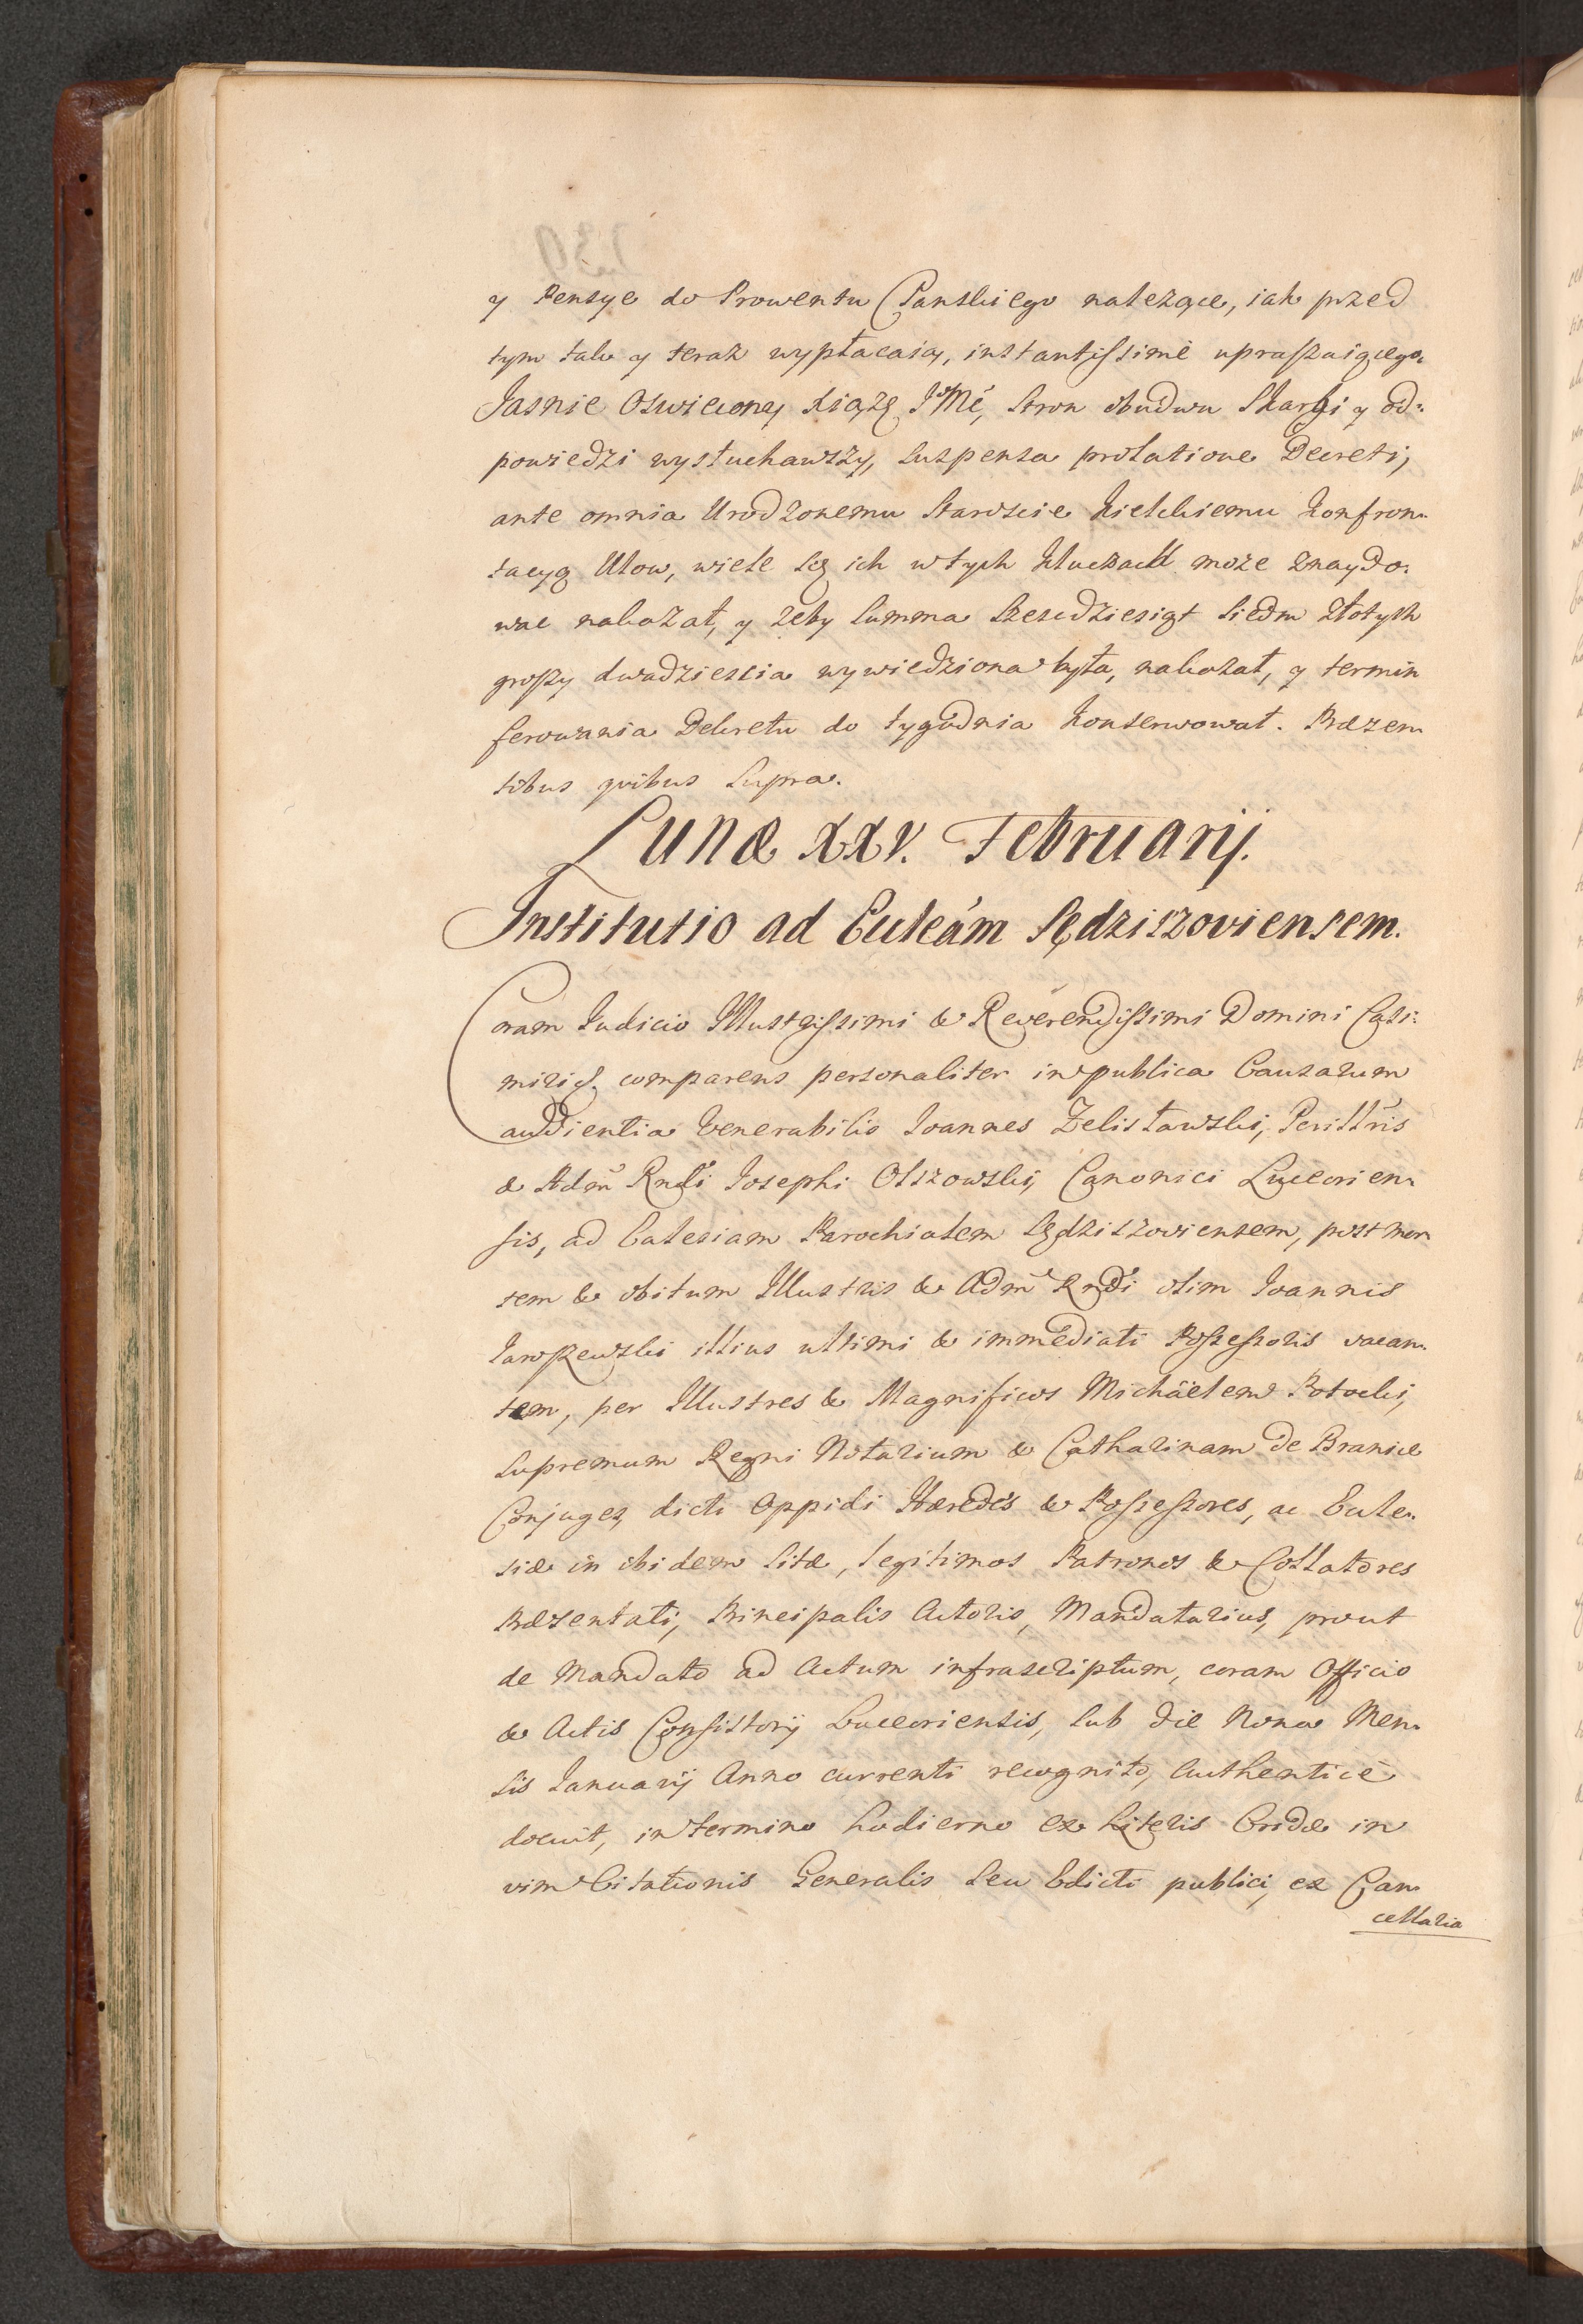 y Pensye do Prowentu Panskiego należące, iak przed
tym tak y teraz wypłacaią, instantissimè upraszaiącego.
Jasnie Oswiecony Xiąże JMć, stron obudwu Skargi y od:
powiedzi wysłuchawszy, suspensa prolatione Decreti,
ante omnia Urodzonemu Staroscie Kielckiemu Konfron:
tacyą Ulow, wiele się ich w tych Kluczach może znaydo:
wac nakazał, y żeby summa szescdziesiąt siedm złotych
groszy dwadziescia wywiedziona była, nakazał, y termin
ferowania Dekretu do tygodnia konserwował. Præsen:
tibus quibus supra.
Lunæ XXV. Februarij.
Institutio ad Eccleâm Sędziszoviensem.
Coram Judicio Illustrissimi & Reverendissimi Domini Casi:
miri &. comparens personaliter in publica Causarum
audientia Venerabilis Joannes Zelisławski, Perillris
& Adm Rndi Josephi Olszowski, Canonici Luceorien:
sis, ad Eclesiam Parochialem Sędziszoviensem, post mor:
tem & obitum Illustris & Adm Rndi olim Joannis
Jaroszewski illius ultimi & immediati Possessoris vacan:
tem, per Illustres & Magnificos Michäelem Potocki,
Supremum Regni Notarium & Catharinam de Branice
Conjuges, dicti Oppidi Hæredes & Possessores, ac Eccle:
siæ in ibidem sitæ, legitimos Patronos & Collatores
Præsentati, Principalis Actoris, Mandatarius, prout
de Mandato ad Actum infrascriptum, coram Officio
& Actis Consistorij Luceoriensis, sub die Nona Men:
sis Januarij Anno currenti recognito, Authenticè
docuit, in termino hodierno ex Literis Cridæ in
vim Citationis Generalis seu Edicti publici, ex Can:
cellaria